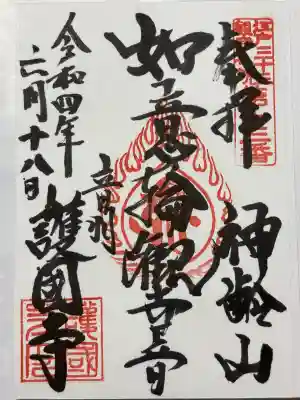 奉拝
神齢山
如意輪観世音
音羽
護國寺
令和四年
六月十八日